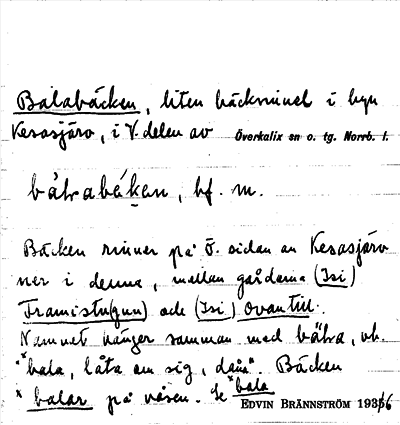 Balabäcken, liten bäckminel i byn
Kesasjärv, i V. delen av Överkalix sn o. tg. Norrb. l.
bɑ̀ɫrabékɐn, bf. m.
Bäcken rinner på Ö. sidan av Kesasjärv
ner i denna, mellan gårdarna (Isi)
Framistu(gun) och (Isi) ovantill.
Namnet hänger samman med
"bala, låta om sig, dåna". Bäcken
balar på våren. Se bala
EDVIN BRÄNNSTRÖM 1936